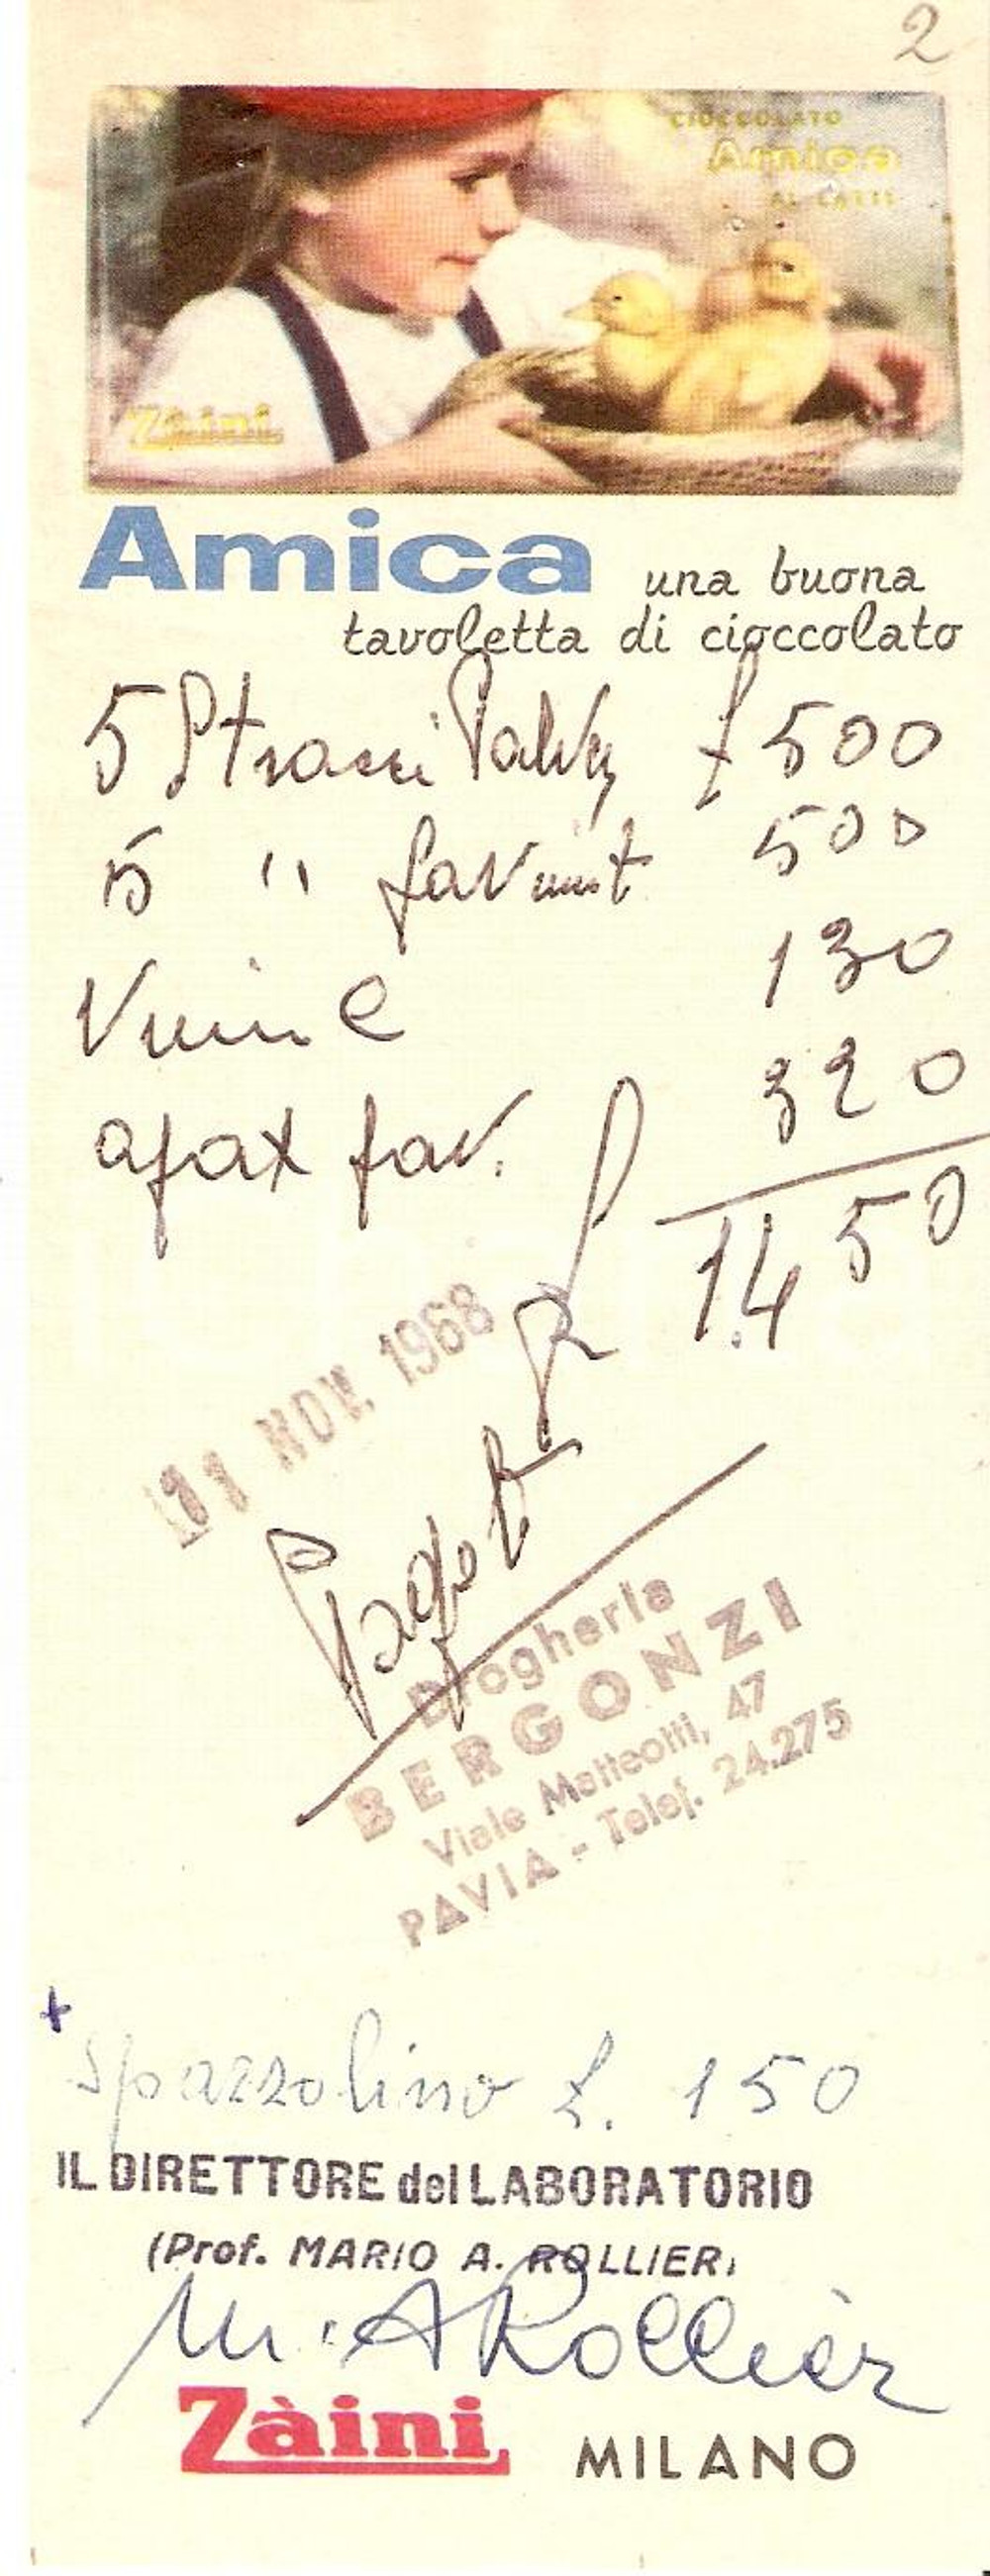 2
CIOCCOLATO
Amica
AL LATTE
Zàini
Amica una buona
tavoletta di cioccolato
5 Stracci £ 500
5 " 500
130
ajax fav. 320
£ 1.450
11 NOV. 1968
Pagato
Drogheria
BERGONZI
Viale Matteotti, 47
PAVIA - Telef. 24.275
+
Spazzolino £. 150
IL DIRETTORE del LABORATORIO
(Prof. MARIO A. ROLLIER)
M. A Rollier
Zàini MILANO